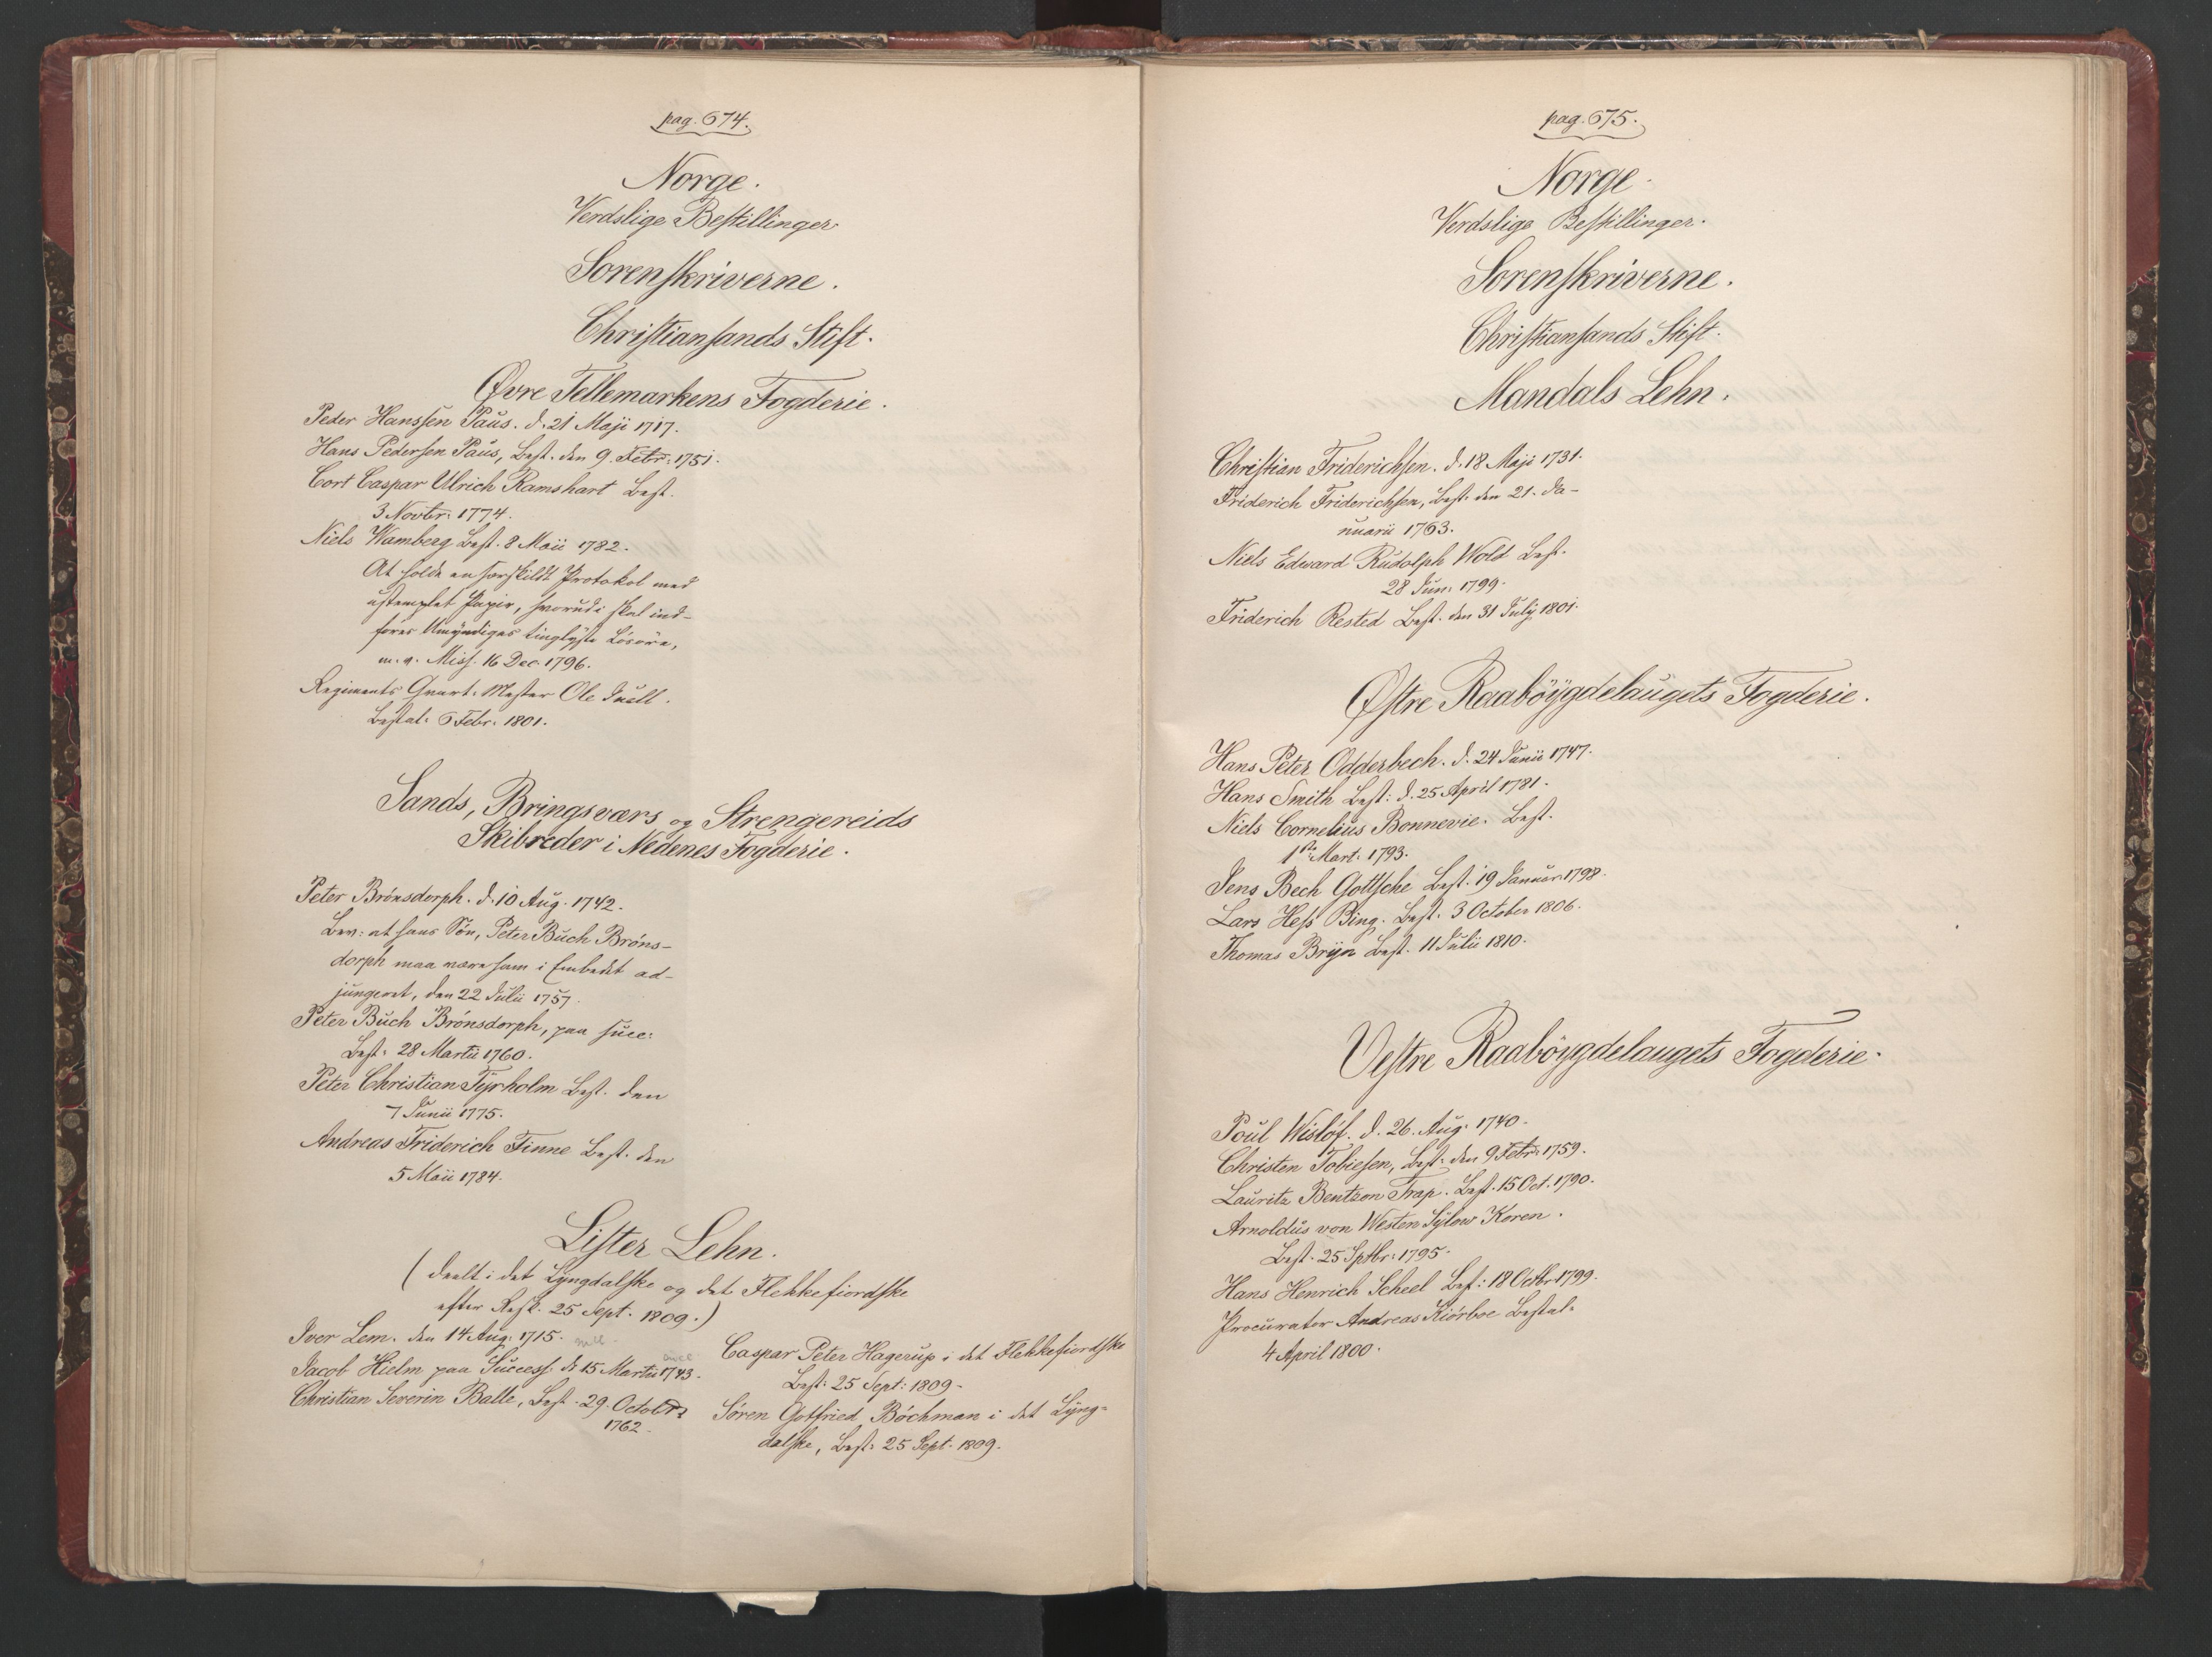 pag. 674.
Norge.
Verdslige Bestillinger.
Sorenskriverne.
Christiansands Stift.
Øvre Tellemarkens Fogderie.
Peder Hanssen Paus. d. 21 Maji 1717.
Hans Pedersen Paus, Best. den 9. Febr: 1751.
Cort Caspar Ulrich Ramshart Best.
3 Novbr: 1774.
Niels Wamberg Best. 8 Maii 1782.
At holde en særskildt Protokol med
ustemplet Papir, hvorudi skal ind-
føres Umyndiges tinglyste Lösöre,
m. v. Miss. 16 Dec. 1796.
Regiments Qvart: Mester Ole Juell.
Bestal: 6 Febr: 1801.
Sands, Bringsværs og Strengereids
Skibreder i Nedenes Fogderie.
Peter Brönsdorph. d. 10 Aug. 1742.
Bev: at hans Sön, Peter Buch Bröns-
dorph maa være ham i Embedet ad-
jungeret, den 22 Julii 1757.
Peter Buch Brönsdorph, paa succ:
Best: 28 Martii 1760.
Peter Christian Tyrholm Best. den
7 Junii 1775.
Andreas Friderich Finne Best. den
5 Maii 1784.
Lister Lehn.
(deelt i det Lyngdalske og det Flekkefiordske
efter Resk. 25 Sept. 1809.)
Iver Lem. den 14 Aug: 1715.
Jacob Hielm paa Success: d: 15 Martii 1743.
Christian Severin Balle, Best. 29. Octobr:
1762.
Caspar Peter Hagerup i det Flekkefiordske
Best: 25 Sept: 1809.
Sören Gotfried Böchman i det Lyng-
dalske, Best: 25 Sept. 1809.
pag. 675.
Norge.
Verdslige Bestillinger.
Sorenskriverne.
Christiansands Stift.
Mandals Lehn.
Christian Friderichsen. d. 18 Maji 1731.
Friderich Friderichsen, Best: den 21. Ja-
nuarii 1763.
Niels Edward Rudolph Wold Best.
28 Jun: 1799.
Friderich Rested Best. den 31 July 1801.
Østre Raaböygdelaugets Fogderie.
Hans Peter Odderbech. d. 24 Junii 1747.
Hans Smith Best: d. 25 April 1781.
Niels Cornelius Bonnevie. Best.
1ste Mart: 1793.
Jens Bech Gottsche Best. 19 Januar 1798.
Lars Hess Bing. Best. 3 October 1806.
Thomas Bryn Best. 11 Julii 1810.
Vestre Raaböygdelaugets Fogderie.
Poul Wislöf. d. 26. Aug: 1740.
Christen Tobiesen, Best. den 9 Febr: 1759.
Lauritz Bentzon Trap. Best. 15 Oct. 1790.
Arnoldus von Westen Sylow Koren.
Best. 25 Sptbr: 1795.
Hans Henrich Scheel Best: 18 Octbr 1799.
Procurator Andreas Kiörboe Bestal:
4 April 1800.